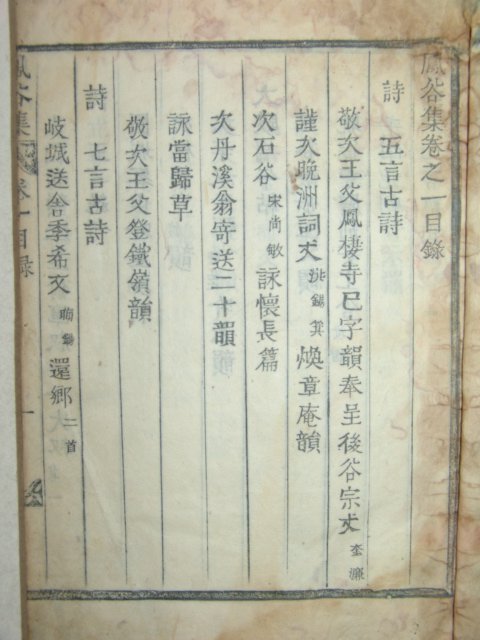 鳳谷集卷之一目錄
詩 五言古詩
敬次王父鳳棲寺巳字韻奉呈後谷宗丈 奎濂
謹次晚洲詞丈 洪錫箕 煥章庵韻
次石谷 宋尚敏 詠懷長篇
次丹溪翁寄送二十韻
詠當歸草
敬次王父登鐵嶺韻
詩 七言古詩
岐城送舍季希文 錫 還鄉 二首
鳳谷集 卷一 目錄 一